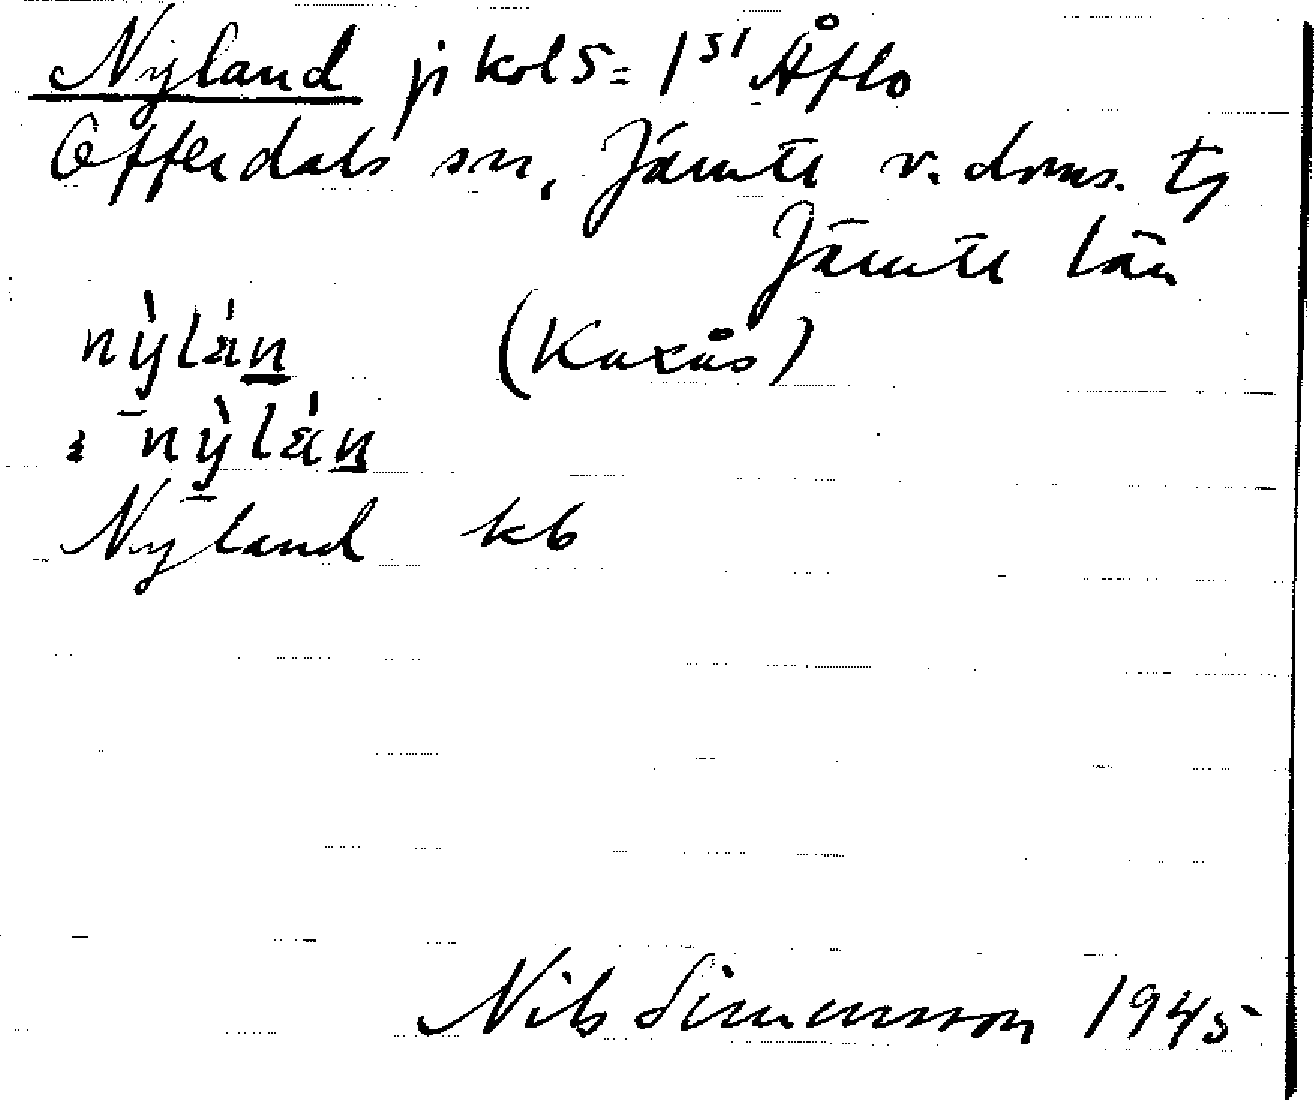 Nyland ji kol 5 = 1⁵¹ Åflo
Offerdals sn, Jämtl v. doms. tg
Jämtl län
nỳlán̲ (Kaxås)
i nỳlán̲
Nyland kb
Nils Simonsson 1945